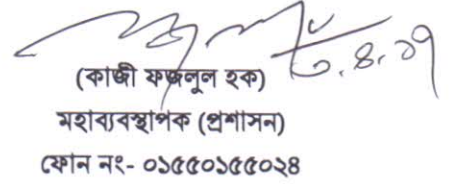 ৩.৪.১৭
(কাজী ফজলুল হক)
মহাব্যবস্থাপক (প্রশাসন)
ফোন নং- ০১৫৫০১৫৫০২৪